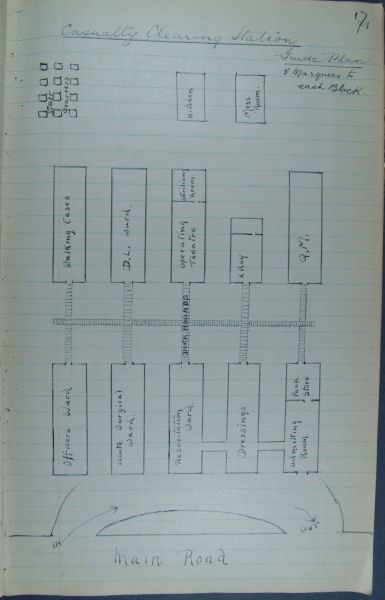 71
Casualty Clearing Station
Guide Plan
5 Marquees to
each Block.
Staff
Quarters
Kitchen
Mess
Room.
Walking Cases
D.I. Ward
Operating
Theatre
X Ray
Q.M.
DUCK BOARDS
Officers Ward
Acute Surgical
Ward.
Resusitation
Ward
Dressings
Pack
Store
Admitting
Room
IN
OUT
Main Road